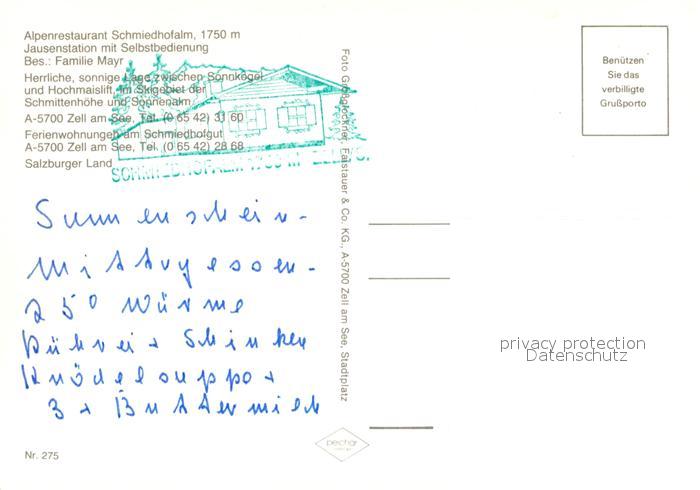 Alpenrestaurant Schmiedhofalm, 1750 m
Jausenstation mit Selbstbedienung
Bes.: Familie Mayr
Herrliche, sonnige Lage zwischen Sonnkogel
und Hochmaislift, im Skigebiet der
Schmittenhöhe und Sonnenalm
A-5700 Zell am See, Tel. (0 65 42) 31 60
Ferienwohnungen am Schmiedhofgut
A-5700 Zell am See, Tel. (0 65 42) 28 68
Salzburger Land
SCHMIEDHOFALM 1750 M
Sunnenschein-
Mittagessen-
25° Wärme
Rührei + Schinken
Knödelsuppe +
3 + Buttermilch
Nr. 275
Foto Großglockner, Faistauer & Co. KG., A-5700 Zell am See, Stadtplatz
pechar
Benützen
Sie das
verbilligte
Grußporto
privacy protection
Datenschutz